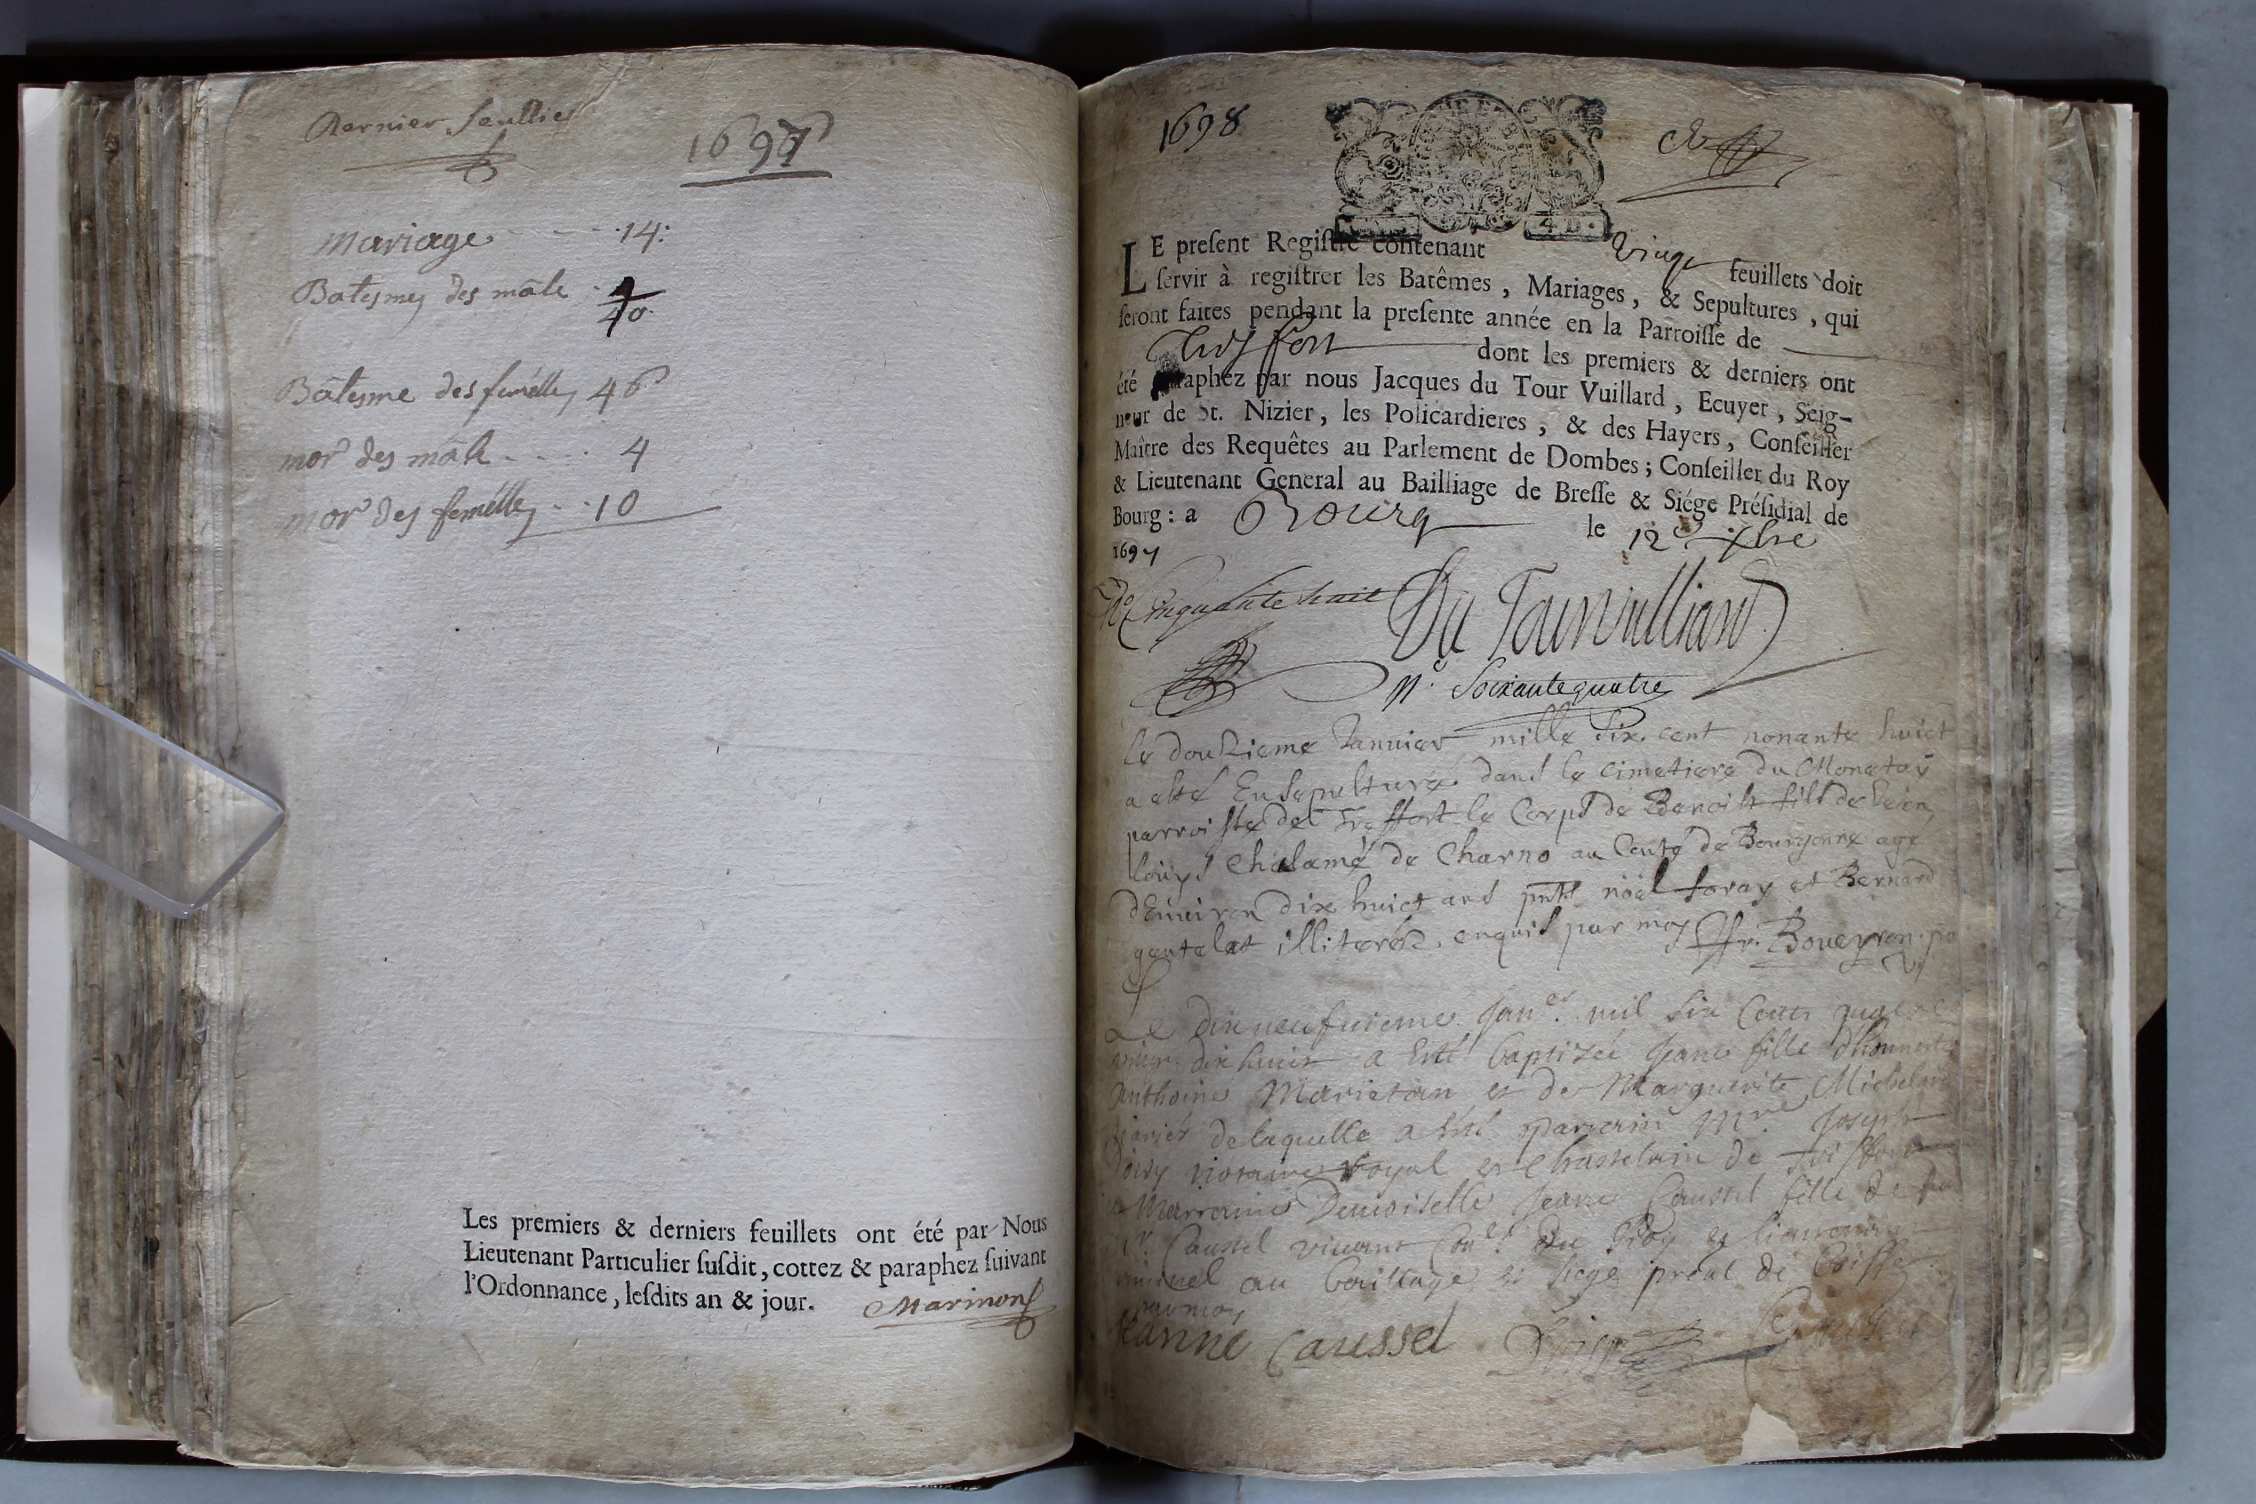 Dernier feullie
1697
mariage - - - - 14:
Batesmes des mâle - 40
Bâtesme des femelles 46
mor des mâle - - - - 4
mor des femelles - - 10
Les premiers & derniers feuillets ont été par Nous
Lieutenant Particulier ſuſdit, cottez & paraphez ſuivant
l'Ordonnance, leſdits an & jour.
Marinon
1698
LE preſent Regiſtre contenant vingt feuillets doit
ſervir à regiſtrer les Batêmes, Mariages, & Sepultures, qui
ſeront faites pendant la preſente année en la Parroiſſe de
Treffort dont les premiers & derniers ont
été paraphez par nous Jacques du Tour Vuillard, Ecuyer, Seig-
neur de St. Nizier, les Policardieres, & des Hayers, Conſeiller
Maître des Requêtes au Parlement de Dombes; Conſeiller du Roy
& Lieutenant General au Bailliage de Breſſe & Siége Préſidial de
Bourg: a Bourg le 12e xbre
1697
No Cinquante huit
Du Tour Vuilliard
N. Soixante quatre
Le douzieme Januier mille six cent nonante huict
a esté Ensepulturé dans le cimetiere du Monetay
parroisse de Treffort le Corps de Benoist fils de
Louys Chalamé de Charno au Conté de Bourgonne age
d'Enuiron dix huict ans pnts noël foray et Bernard
gentelet illiterés enquis par moy Boueyron
Le dix neufuieme Janer mil six cents quatre
vint dix huit a esté baptizée Jeane fille d'honneste
Anthoine Marietan et de Marguerite
mariés de laquelle a esté parrain Mre Joseph
notaire Royal et Chastelain de Treffort
et Marraine Demoiselle Jeane Caussel fille de
Sr. Caussel viuant Coner du Roy et lieutenant
criminel au baillage et siege preal de bresse
par moy
Jeanne Caussel